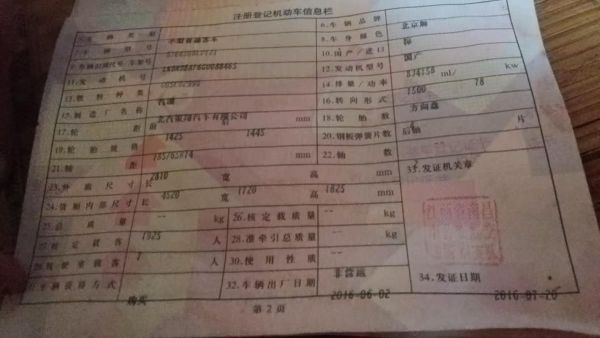 注册登记机动车信息栏
5.车辆类型 小型普通客车 6.车辆品牌 北京牌
7.车辆型号 8.车身颜色 棕
9.车辆识别代号/车架号 10.国产/进口 国产
11.发动机号 12.发动机型号
13.燃料种类 汽油 14.排量/功率 1500 ml/ 78 kw
15.制造厂名称 北汽银翔汽车有限公司 16.转向形式 方向盘
17.轮距 前 1425 后 1445 mm 18.轮胎数 4
19.轮胎规格 185/65R14 20.钢板弹簧片数 后轴 片
21.轴距 2810 mm 22.轴数
23.外廓尺寸 长 4520 宽 1720 高 1825 mm 33.发证机关章
24.货厢内部尺寸 长 宽 高 mm
25.总质量 1925 kg 26.核定载质量 -- kg
27.核定载客 7 人 28.准牵引总质量 -- kg
29.驾驶室载客 -- 人 30.使用性质 非营运
31.车辆获得方式 购买 32.车辆出厂日期 2016-06-02 34.发证日期 2016-07-20
第2页